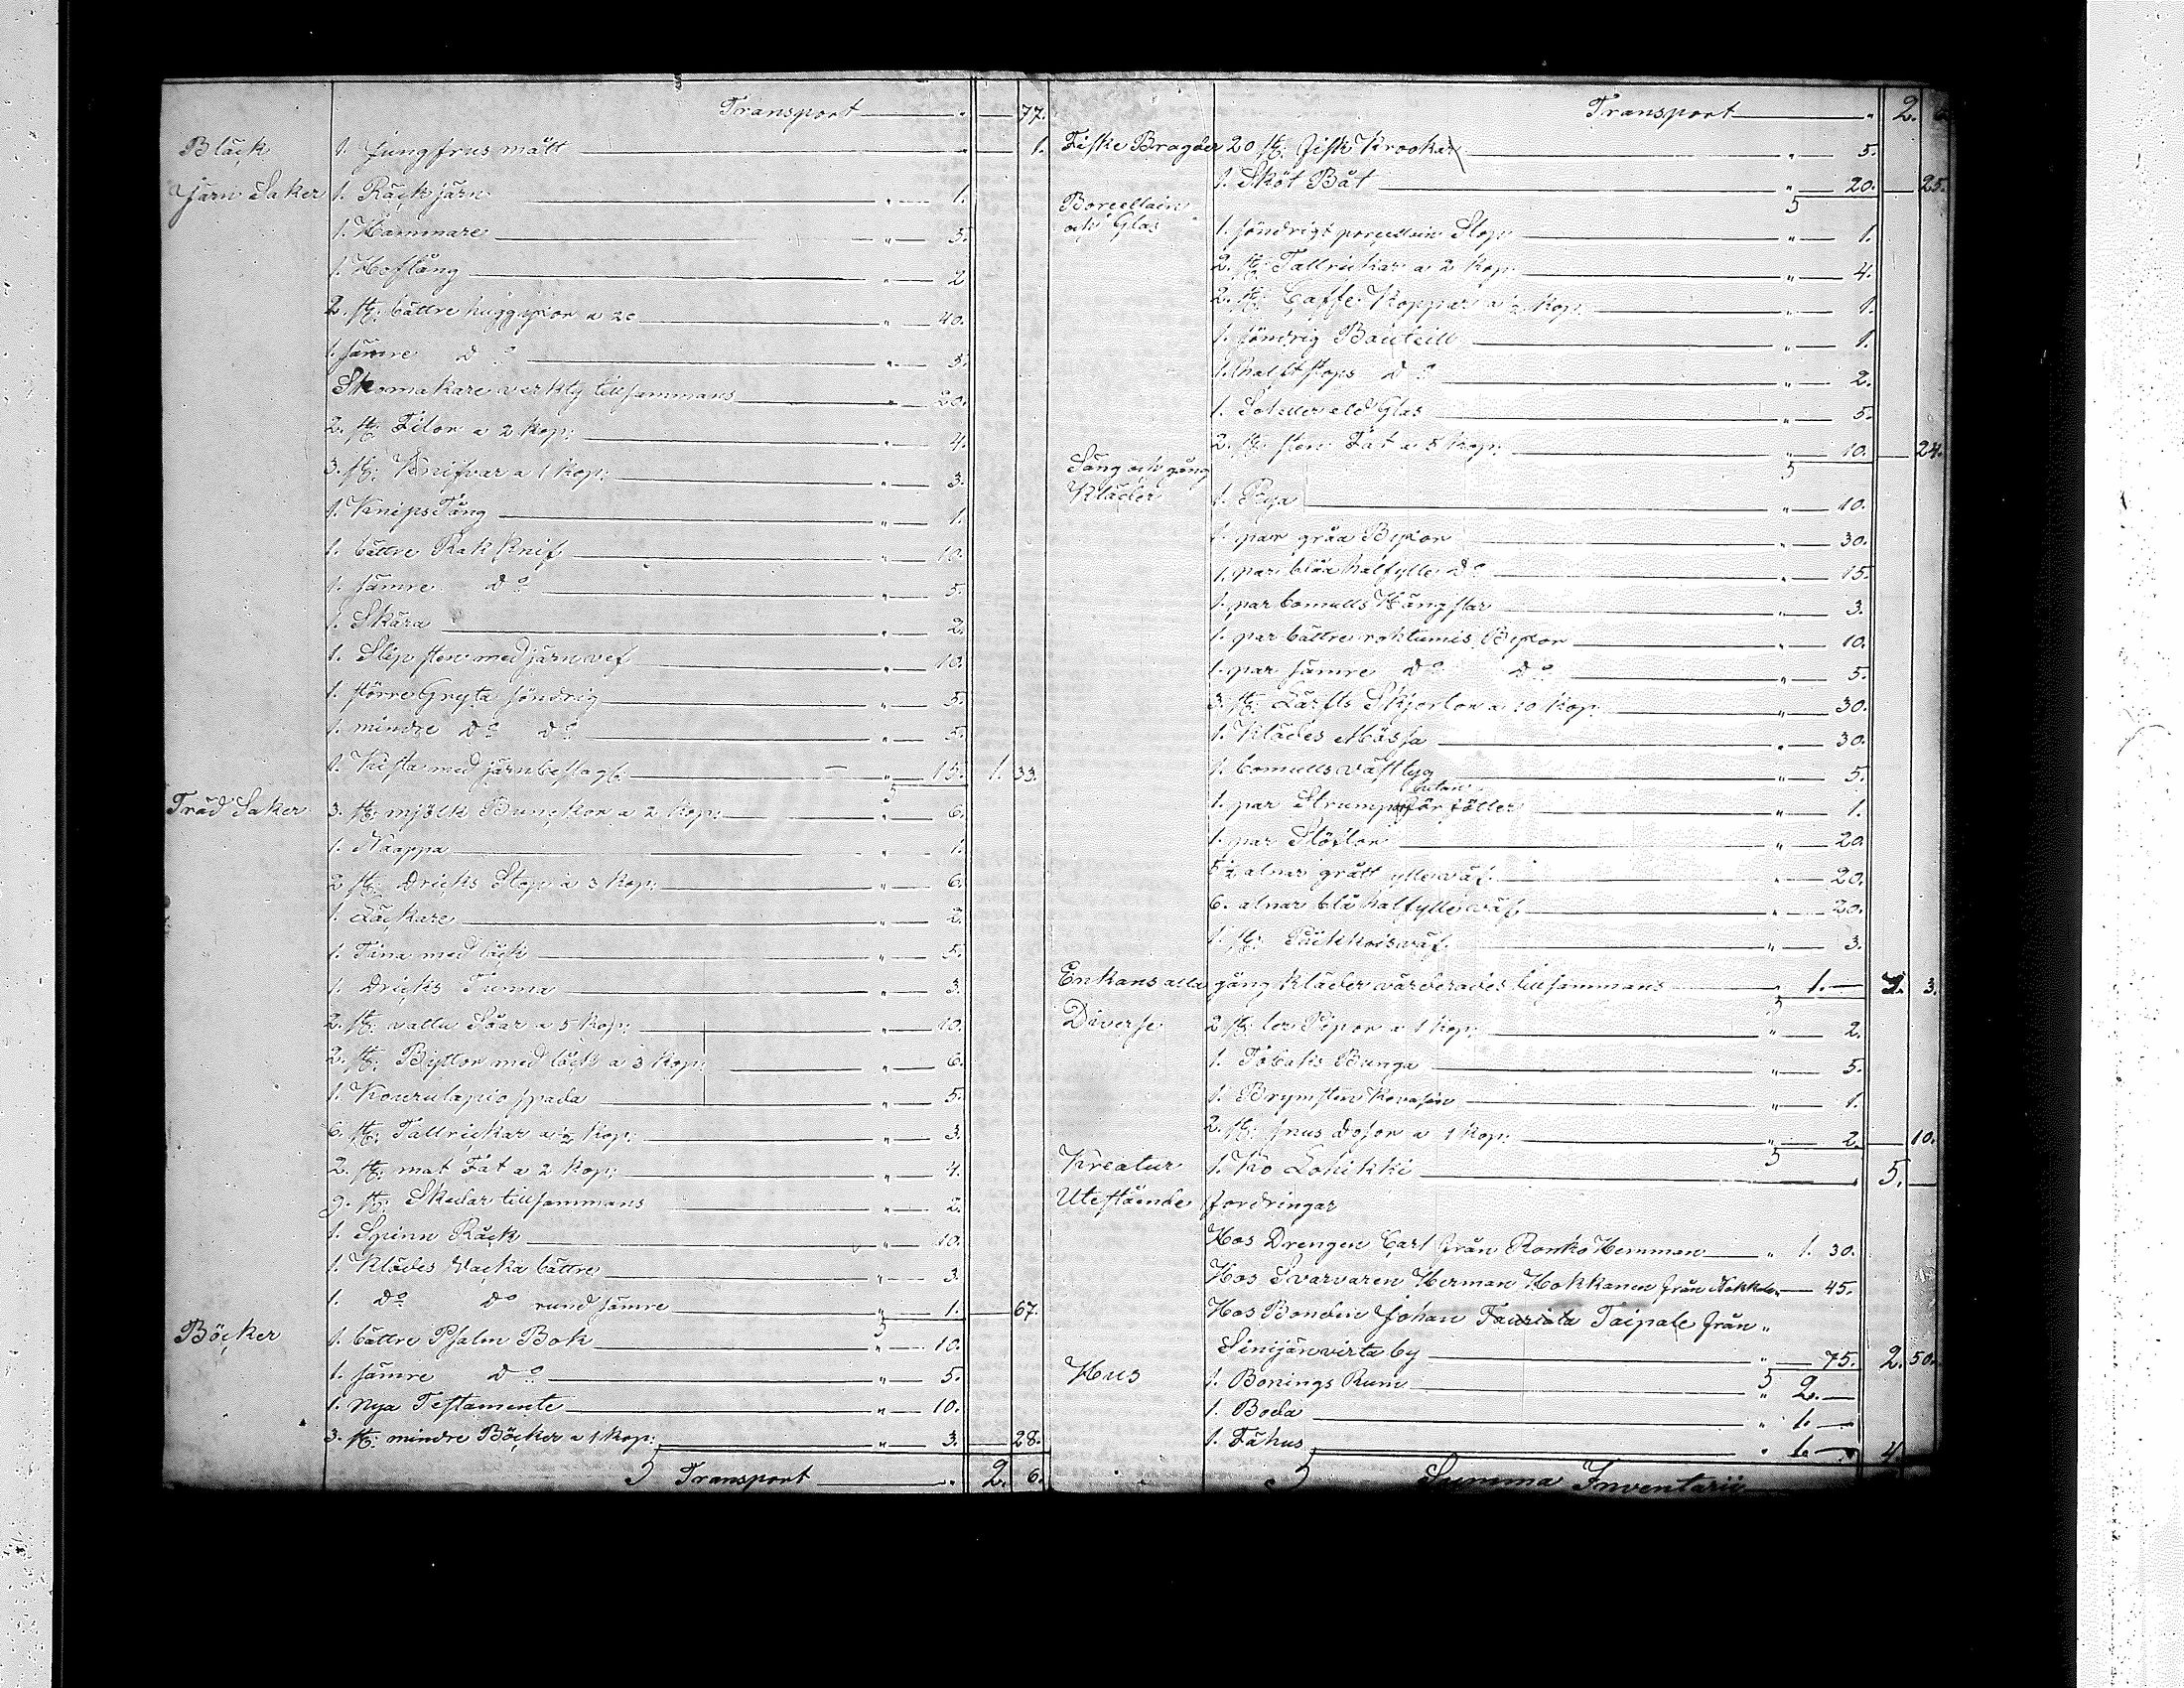 Transport — " — 77.
Bläck 1. Jungfrus mått — 1.
Järn Saker 1. Räck järn " — 1.
1. Hammare " — 3.
1. Hoftång " — 2
2. st: bättre huggyxor a 20 " — 40.
1. sämre do " — 3.
Skomakare verktyg tillsammans " — 20.
2. st: Filor a 2 kop: " — 4.
3. st: Knifvar a 1 kop: " — 3.
1. Knips Tång " — 1.
1. bättre Rak Knif " — 10.
1. sämre do " — 5.
1. Skära " — 2.
1. Slip sten med järnvef " — 10.
1. större Gryta söndrig " — 5.
1. mindre do do " — 5.
1. Kista med järnbeslag " — 15. 1. 33.
Träd Saker 3. st: mjölk Bunckor a 2 kop: " — 6.
1. Naappa " — 1.
2 st: Dricks Stop a 3 kop: " — 6.
1. Läckare " — 2.
1. Tina med läck " — 5.
1. Dricks Tunna " — 3.
2. st: vattu Såar a 5 kop: " — 10.
2. st: Byttor med läck a 3 kop: " — 6.
1. Kourulapio spada " — 5.
6. st: Tallrickar a ½ kop: " — 3.
2. st: mat Fat a 2 kop: " — 4.
9. st: Skedar tillsammans " — 2.
1. Spinn Råck " — 10.
1. Klädes Vacka bättre " — 3.
1. do do rund sämre " — 1. — 67.
Böcker 1. bättre Psalm Bok " — 10.
1. sämre do " — 5.
1. Nya Testamente " — 10.
3. st: mindre Böcker a 1 kop: " — 3. — 28.
Transport " 2. 6.
Transport " 2.
Fiske Bragder 20 st: fisk Krookar " — 5.
1. Sköt Båt " — 20. — 25.
Borcellain och Glas
1. söndrigt porcellain Stop " — 1.
2. st: Tallrickar a 2 kop: " — 4.
2. st: Caffe Koppar a ½ kop: " — 1.
1. söndrig Bouteill " — 1.
1. halft stops do " — 2.
1. Glas " — 5.
2. st: sten Fat a 5 kop: " — 10. — 24.
Säng och gång Kläder
1. Rya " — 10.
1. par gråa Byxor " — 30.
1. par blåa halfylle do " — 15.
1. par bomulls Hängslar " — 3.
1. par bättre Byxor " — 10.
1. par sämre do do " — 5.
3. st: Lärfts Skjortor a 10 kop: " — 30.
1. Klädes Mössa " — 30.
1. bomulls västtyg " — 5.
1. par Strumpor utan fötter " — 1.
1. par Stöflor " — 20.
5½ alnar grått ylleväf " — 20.
6. alnar blå halfylle väf " — 20.
1. st: " — 3.
Enkans alla gång kläder värderades tillsammans " 1. — 3.
Diverse 2 st: ler Pipor a 1 kop: " — 2.
1. Tobaks Bunga " — 5.
1. Brynsten " — 1.
2. st: snus dosor a 1 kop: " — 2. — 10.
Kreatur 1. Ko Lohikki " 5. —
Utestående fordringar
Hos Drengen Carl från Ronko Hemman — " 1. 30.
Hos Svarvaren Herman Hokkanen från — 45.
Hos Bonden Johan Taipale från "
Sinijänvirta by " — 75. 2. 50.
Hus 1. Bonings Rum " 2. —
1. Boda " 1. —
1. Fähus " 1. — 4.
Summa Inventarii